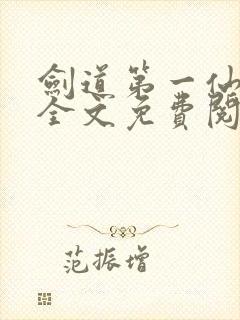 劍道第一仙
全文免費閱
范振增